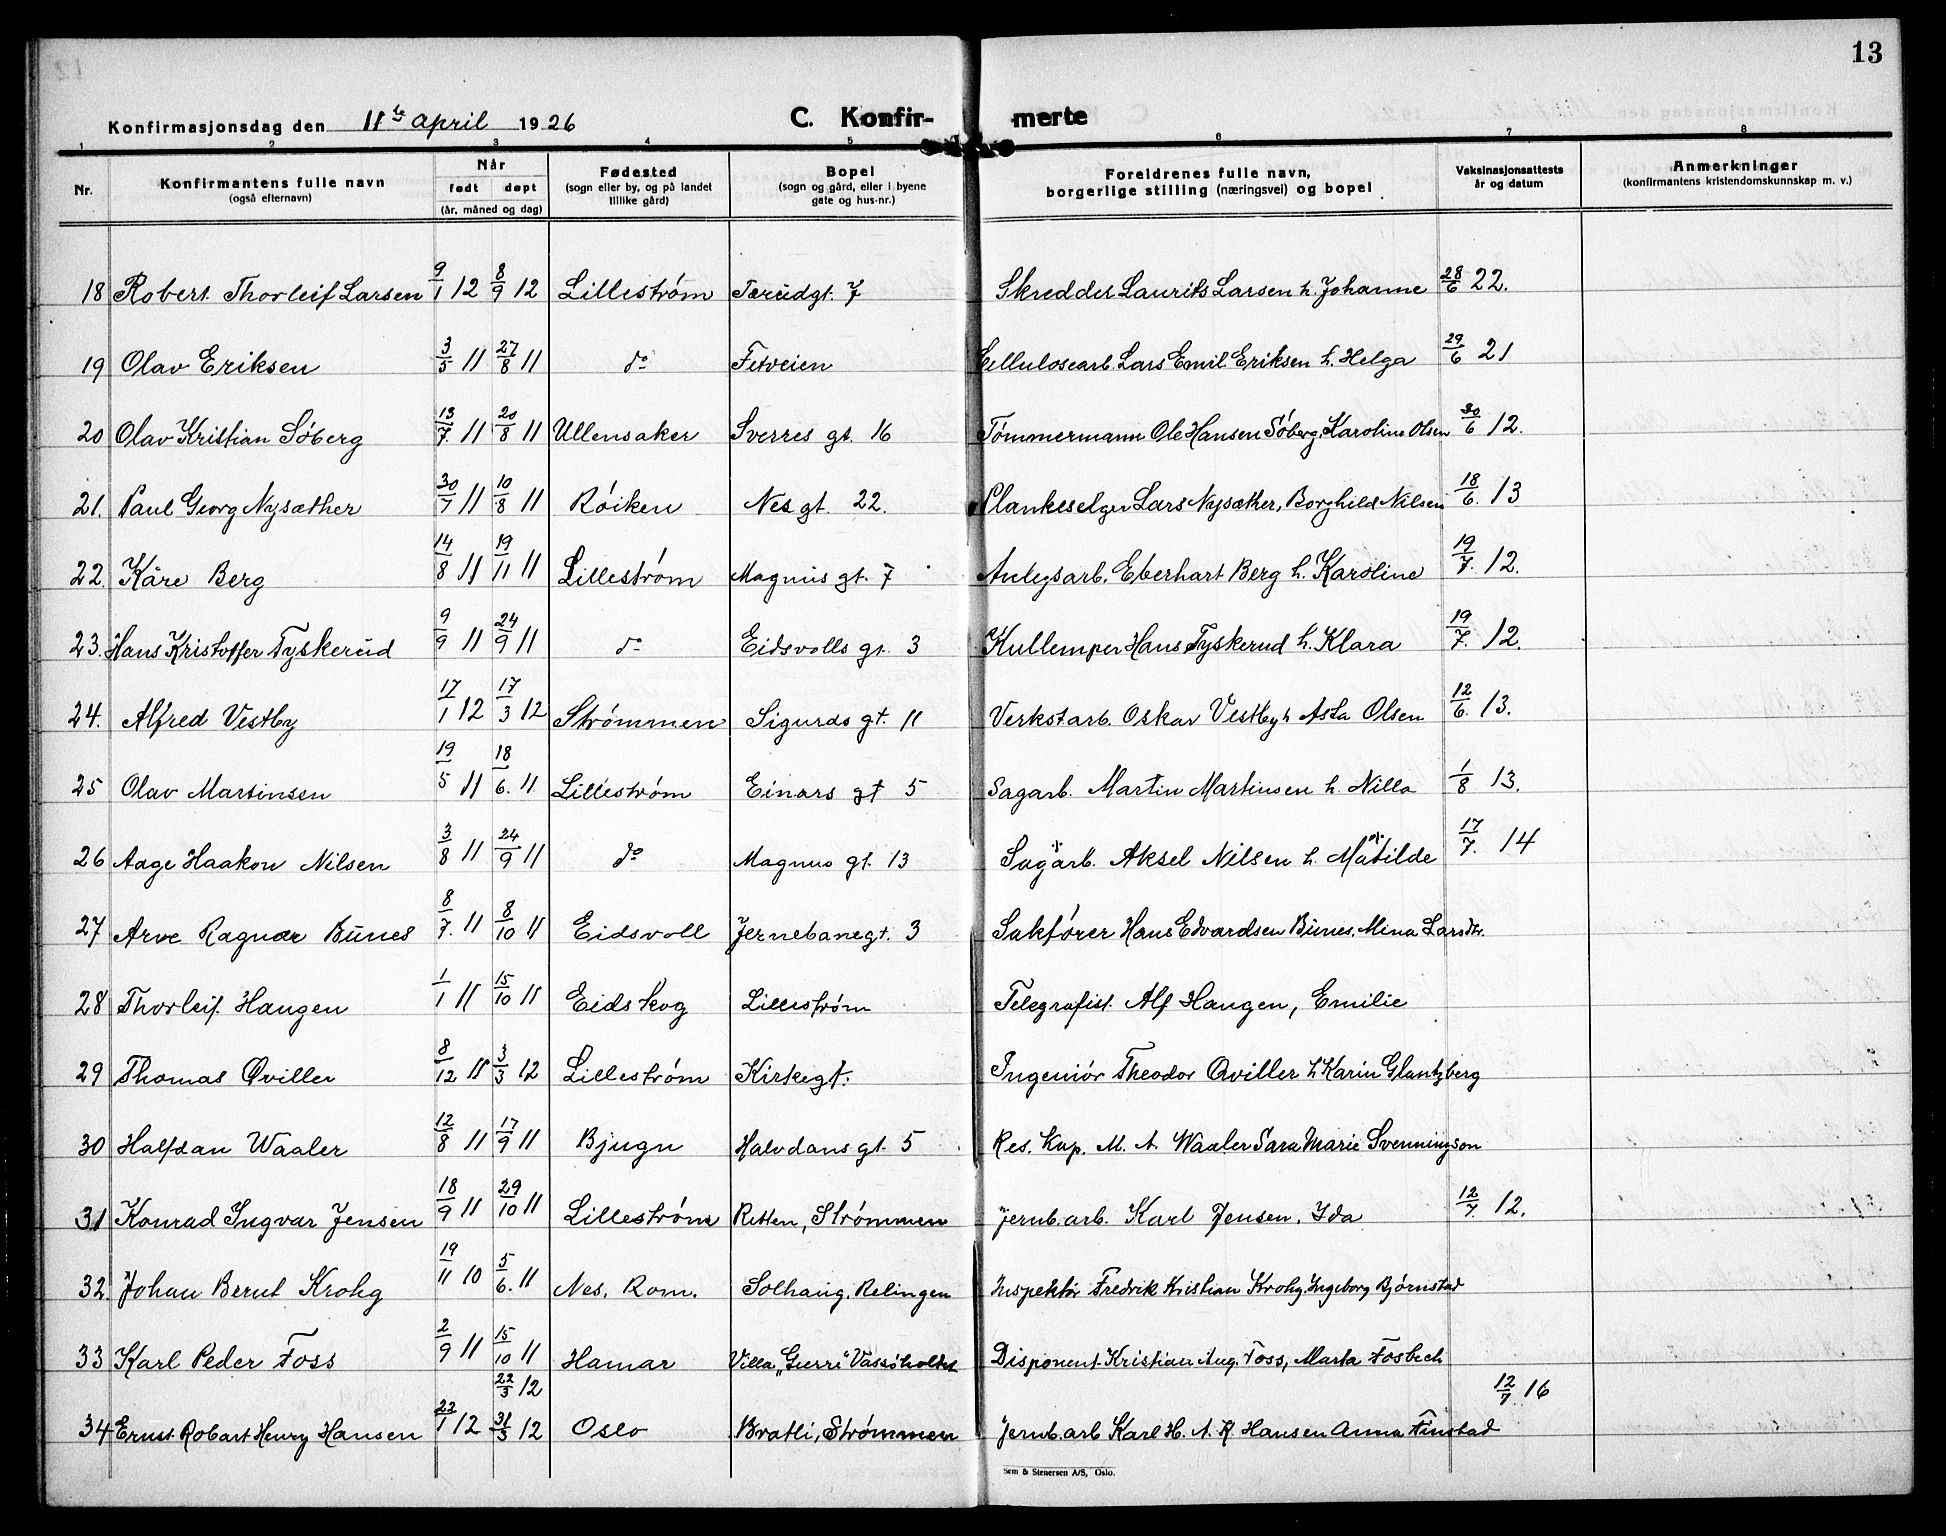 13
Konfirmasjonsdag den 11te April 1926 C. Konfir- merte
1 2 3 4 5 6 7 8
Nr. Konfirmantens fulle navn (også efternavn) Når født døpt (år, måned og dag) Fødested (sogn eller by, og på landet tillike gård) Bopel (sogn og gård, eller i byene gate og hus-nr.) Foreldrenes fulle navn, borgerlige stilling (næringsvei) og bopel Vaksinasjonsattests år og datum Anmerkninger (konfirmantens kristendomskunnskap m. v.)
18 Robert Thorleif Larsen 9/1 12 8/9 12 Lillestrøm Tærudgt. 7 Skredder Laurits Larsen h. Johanne 28/6 22.
19 Olav Eriksen 3/5 11 27/8 11 do Fetveien Cellulosearb. Lars Emil Eriksen h. Helga 29/6 21
20 Olav Kristian Søberg 13/7. 11 20/8 11 Ullensaker Sverres gt. 16 Tømmermann Ole Hansen Søberg, Karoline Olsen 30/6 12.
21. Paul Georg Nysæther 30/7 11 10/8 11 Røiken Nes gt. 22. Plankeselger Lars Nysæther, Borghild Nilsen 18/6. 13
22. Kåre Berg 14/8 11 19/11 11 Lillestrøm Magnus gt. 7 Anlegsarb. Eberhart Berg h. Karoline 19/7. 12.
23. Hans Kristoffer Tyskerud 9/9 11 24/9 11 do Eidsvolls gt. 3 Kullemper Hans Tyskerud h. Klara 19/7. 12.
24. Alfred Vestby 17/1 12 17/3 12 Strømmen Sigurds gt. 11 Verkstarb. Oskar Vestby h Asta Olsen 12/6. 13.
25 Olav Martinsen 19/5 11 18/6. 11. Lillestrøm Einars gt 5 Sagarb. Martin Martinsen h. Nilla 1/8 13.
26 Aage Haakon Nilsen 3/8 11 24/9 11 do Magnus gt. 13 Sagarb. Aksel Nilsen h. Matilde 17/7. 14
27 Arve Ragnar Bunes 8/7. 11 8/10 11 Eidsvoll Jernebanegt. 3 Sakfører Hans Edvardsen Bunes, Mina Larsdtr.
28 Thorleif Haugen 1/1 11 15/10 11 Eidskog Lillestrøm Telegrafist Alf Haugen, Emilie
29 Thomas Qviller 8/12 11 3/3 12 Lillestrøm Kirkegt. Ingeniør Theodor Qviller h Karin Glantzberg
30 Halfdan Waaler 12/8 11 17/9 11 Bjugn Halvdans gt. 5 Res. Kap. M. A. Waaler Sara Marie Svenningson
31 Konrad Ingvar Jensen 18/9 11 29/10 11 Lillestrøm Ritten, Strømmen Jernb.arb. Karl Jensen, Ida 12/7. 12.
32. Johan Bernt Krohg 19/11 10 5/6. 11 Nes, Rom. Solhaug, Relingen Inspektør Fredrik Kristian Krohg, Ingeborg Bjørnstad
33 Karl Peder Foss 2/9 11 15/10 11 Hamar Villa "Gurri" Disponent Kristian Aug. Foss, Marta Fosbech
22/3 12 12/7 16
34 Ernst Robart Henry Hansen 22/1 12 31/3 12 Oslo Bratli, Strømmen Jernb.arb Karl H. A. R. Hansen Anna Finstad
Sem & Stenersen A/S, Oslo.